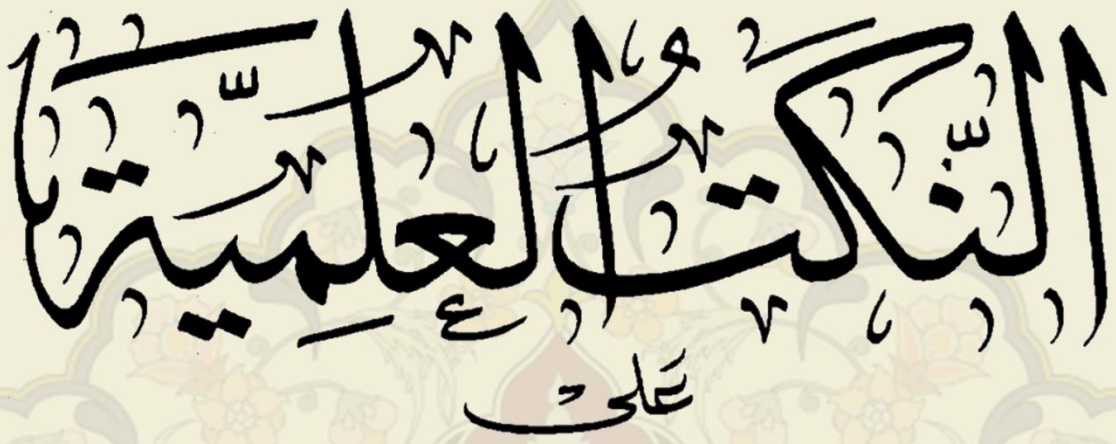 النُّكَتُ العِلْمِيَّةُ
عَلى